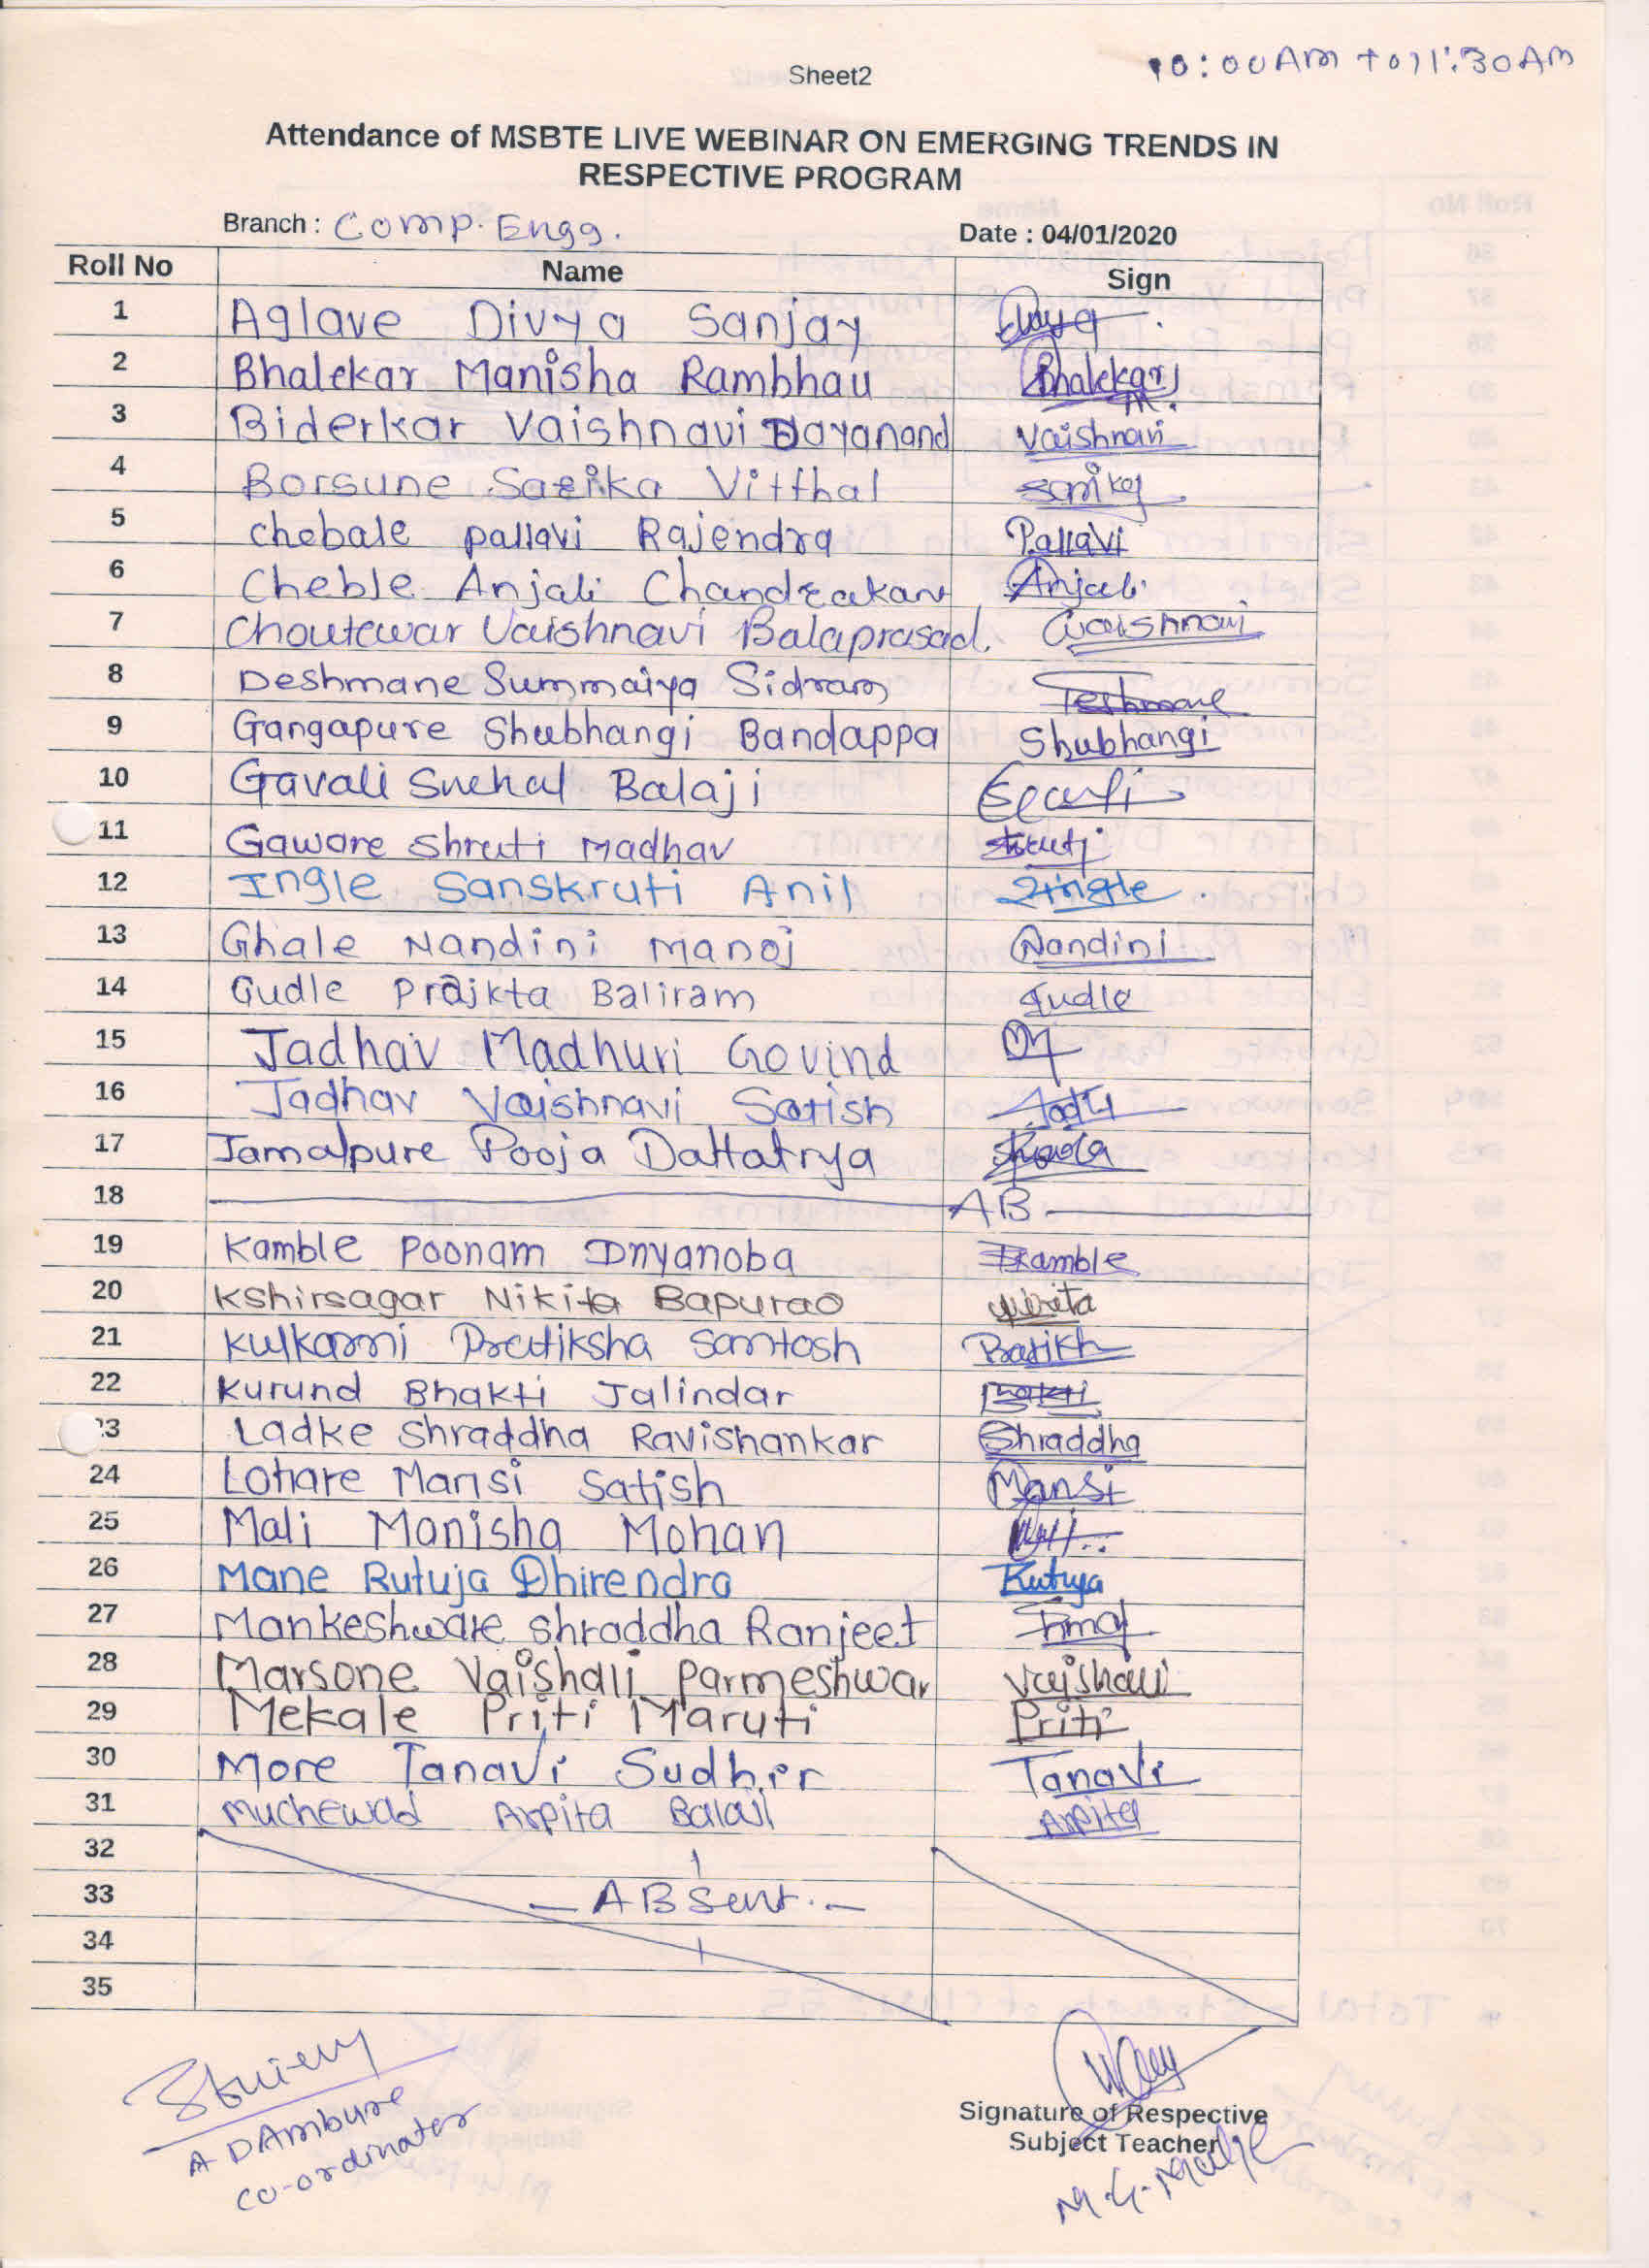 Sheet2
10:00AM to 11:30AM
Attendance of MSBTE LIVE WEBINAR ON EMERGING TRENDS IN
RESPECTIVE PROGRAM
Branch : Comp. Engg.
Date : 04/01/2020
Roll No Name Sign
1 Aglave Divya Sanjay
2 Bhalekar Manisha Rambhau Bhalekar
3 Biderkar Vaishnavi Dayanand Vaishnavi
4 Borsune Sarika Vitthal Sarika
5 Chebale pallavi Rajendra Pallavi
6 Cheble Anjali Chandrakant Anjali
7 Choutewar Vaishnavi Balaprasad. Vaishnavi
8 Deshmane Summaiya Sidram
9 Gangapure Shubhangi Bandappa Shubhangi
10 Gavali Snehal Balaji
11 Gaware Shruti Madhav Shruti
12 Ingle Sanskruti Anil Ingle
13 Ghale Nandini Manoj Nandini
14 Gudle Prajkta Baliram Gudle
15 Jadhav Madhuri Govind
16 Jadhav Vaishnavi Satish
17 Jamalpure Pooja Dattatrya
18 AB
19 Kamble Poonam Dnyanoba Kamble
20 Kshirsagar Nikita Bapurao
21 Kulkarni Pratiksha Santosh
22 Kurund Bhakti Jalindar Bhakti
23 Ladke Shraddha Ravishankar Shraddha
24 Lohare Mansi Satish Mansi
25 Mali Manisha Mohan
26 Mane Rutuja Dhirendra Rutuja
27 Mankeshware Shraddha Ranjeet
28 Marsone Vaishali Parmeshwar Vaishali
29 Mekale Priti Maruti Priti
30 More Tanavi Sudhir Tanavi
31 Muchewad Arpita Balaji Arpita
32
33 ABsent.
34
35
A D Ambure
co-ordinator
Signature of Respective
Subject Teacher